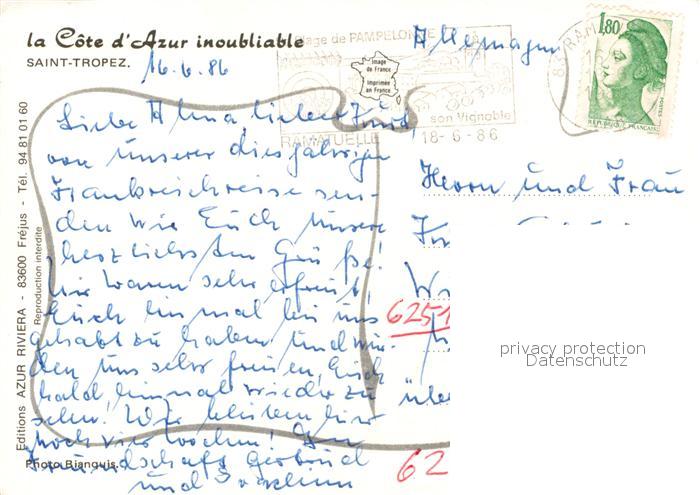 la Côte d'Azur inoubliable
SAINT-TROPEZ.
16.6.86
Plage de PAMPELONNE
Image
de France
Imprimée
en France
son Vignoble
RAMATUELLE 18-6-86
Allemagne
1,80
POSTES
REPUBLIQUE FRANÇAISE
Liebe Alma, lieber
von unserer diesjährigen
Frankreichreise sen-
den wir Euch unsere
herzlichsten Grüße!
Wir waren sehr erfreut,
Euch einmal bei uns
gehabt zu haben und wür-
den uns sehr freuen, Euch
bald einmal wieder zu
sehen! Wir bleiben hier
noch vier Wochen! In
Freundschaft Gertrud
und Joachim
Herrn und Frau
6251
über
62
privacy protection
Datenschutz
Editions AZUR RIVIERA - 83600 Fréjus - Tél. 94 81 01 60
Reproduction interdite
Photo Bianquis.C